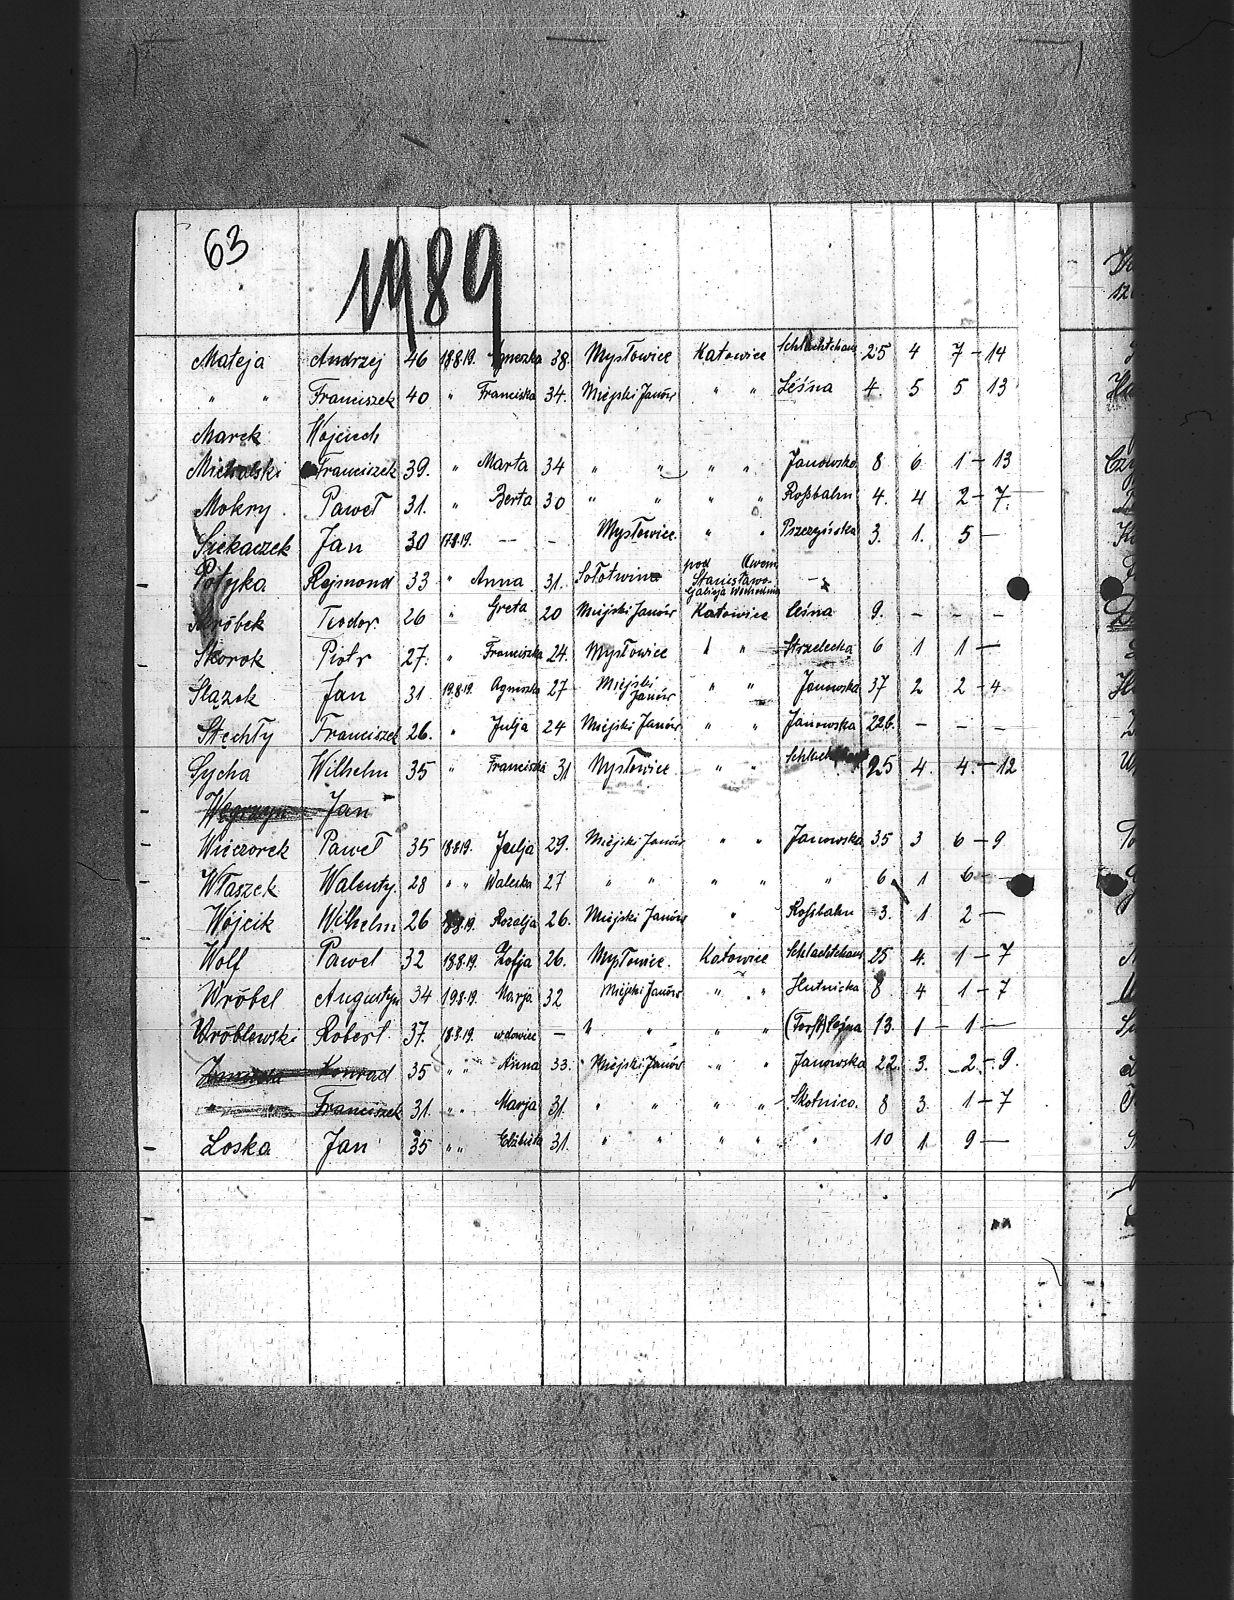 63
1989
Mateja Andrzej 46 18.8.19. Agneszka 38. Mysłowice Katowice Schlachthaus 25 4 7 - 14
" " Franciszek 40 " Franciska 34. Miejski Janów " " Leśna 4. 5 5 13
Marek Wojciech
Michalski Franciszek 39. " Marta 34 " " " " Janowska. 8 6 1 - 13
Mokry. Paweł 31. " Berta 30 " " " " Roßbahn 4. 4 2 - 7.
Siekaczek Jan 30 17.8.19. - - Mysłowice. " " Pszczyńska 3. 1. 5 -
Potyka Rajmond 33 " Anna 31. Sołotwina pod Lwom Stanisława Galicja Wschodnia -
Teodor. 26 " Greta 20 Miejski Janów Katowice leśna 9. - - -
Skorok Piotr 27. " Franciszka 24. Mysłowice " " Strzelecka 6 1 1 -
Ślązok Jan 31. 19.8.19. Agniszka 27 Miejski Janów " " Janowska 37 2 2 - 4
Stechły Franciszek 26. " Julja 24 Miejski Janów " " Janowska 226. - - -
Sycha Wilhelm 35 " Franciszka 31 Mysłowice " " 25 4. 4. - 12
Węgrzyn Jan
Wieczorek Paweł 35 18.8.19. Julja 29. Miejski Janów " " Janowska 35 3 6 - 9
Właszek Walenty. 28 " " Waleska 27 " " " " " 6 1 6 -
Wójcik Wilhelm 26 Rozalja 26. Miejski Janów " Roßbahn 3. 1 2 -
Wolf Pawel 32 18.8.19. Zofja 26. Mysłowice. Katowice Schlachthaus 25 4. 1 - 7
Wróbel Augustyn 34 19.8.19. Marja 32 Miejski Janów " " Hutnicka 8. 4 1 - 7
Wróblewski Robert. 37. 18.8.19. wdowiec - " " " " (Forst) leśna 13. 1 - 1 -
Konrad 35 " " Anna 33. Miejski Janów " " Janowska 22. 3. 2. - 9.
" " Franciszek 31. " " Marja 31. " " " " Skotnica. 8 3. 1 - 7
Loska Jan 35 " " Elżbieta 31. " " " " " 10 1. 9 -